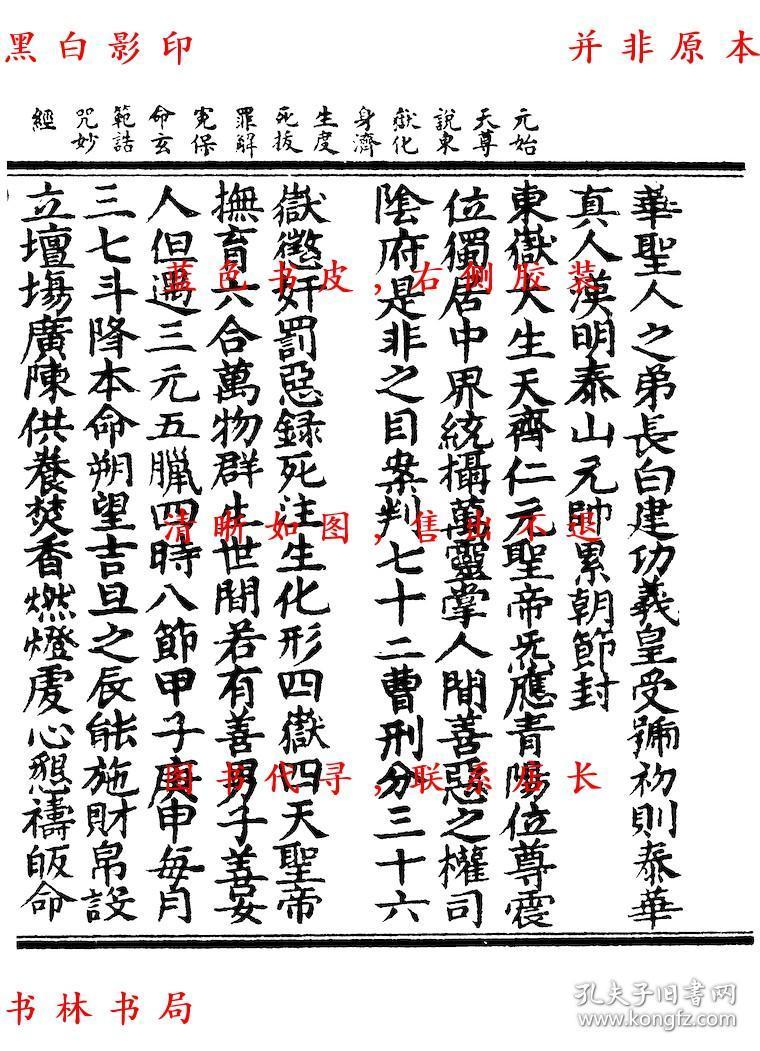 黑白影印
并非原本
元始
天尊
說東
嶽化
身濟
生度
死拔
罪解
寃保
命玄
範誥
咒妙
經
華聖人之弟長白建功義皇受號初則泰華
真人漢明泰山元帥累朝節封
東嶽大生天齊仁元聖帝炁應青陽位尊震
位獨居中界統攝萬靈掌人間善惡之權司
陰府是非之目案判七十二曹刑分三十六
嶽懲奸罰惡錄死注生化形四嶽四天聖帝
撫育六合萬物群生世間若有善男子善女
人但遇三元五臘四時八節甲子庚申每月
三七斗降本命朔望吉旦之辰能施財帛設
立壇場廣陳供養焚香燃燈虔心懇禱皈命
蓝色书皮，右侧胶装
清晰如图，售出不退
图书代寻，联系店长
书林书局
孔夫子旧书网
www.kongfz.com